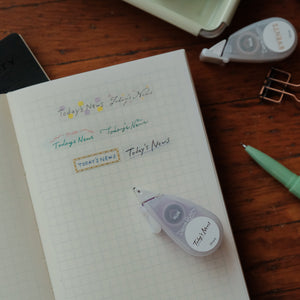 Today's News Today's News
Today's News Today's News
TODAY'S NEWS Today's News
Today's News